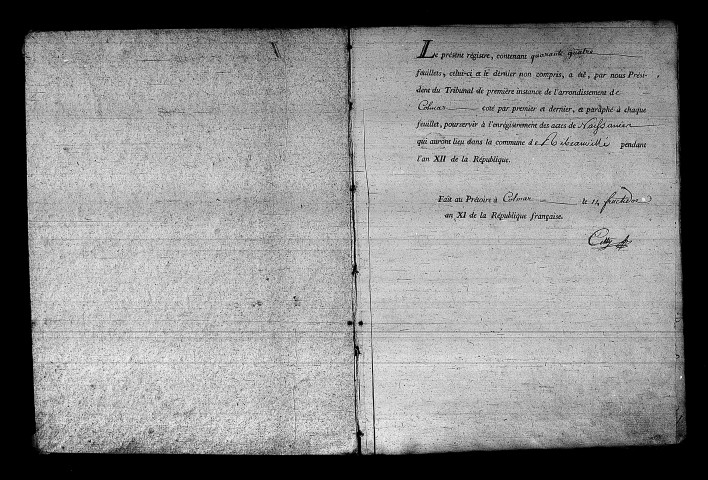 Le présent régistre, contenant quarante quatre
feuillets, celui-ci et le dernier non compris, a été, par nous Prési-
dent du Tribunal de première instance de l'arrondissement de
Colmar coté par premier et dernier, et paraphé à chaque
feuillet, pour servir à l'enrégistrement des actes de Naissances
qui auront lieu dans la commune de Ribeauvillé pendant
l'an XII de la République.
Fait au Prétoire à Colmar le 14 fructidor
an XI de la République française.